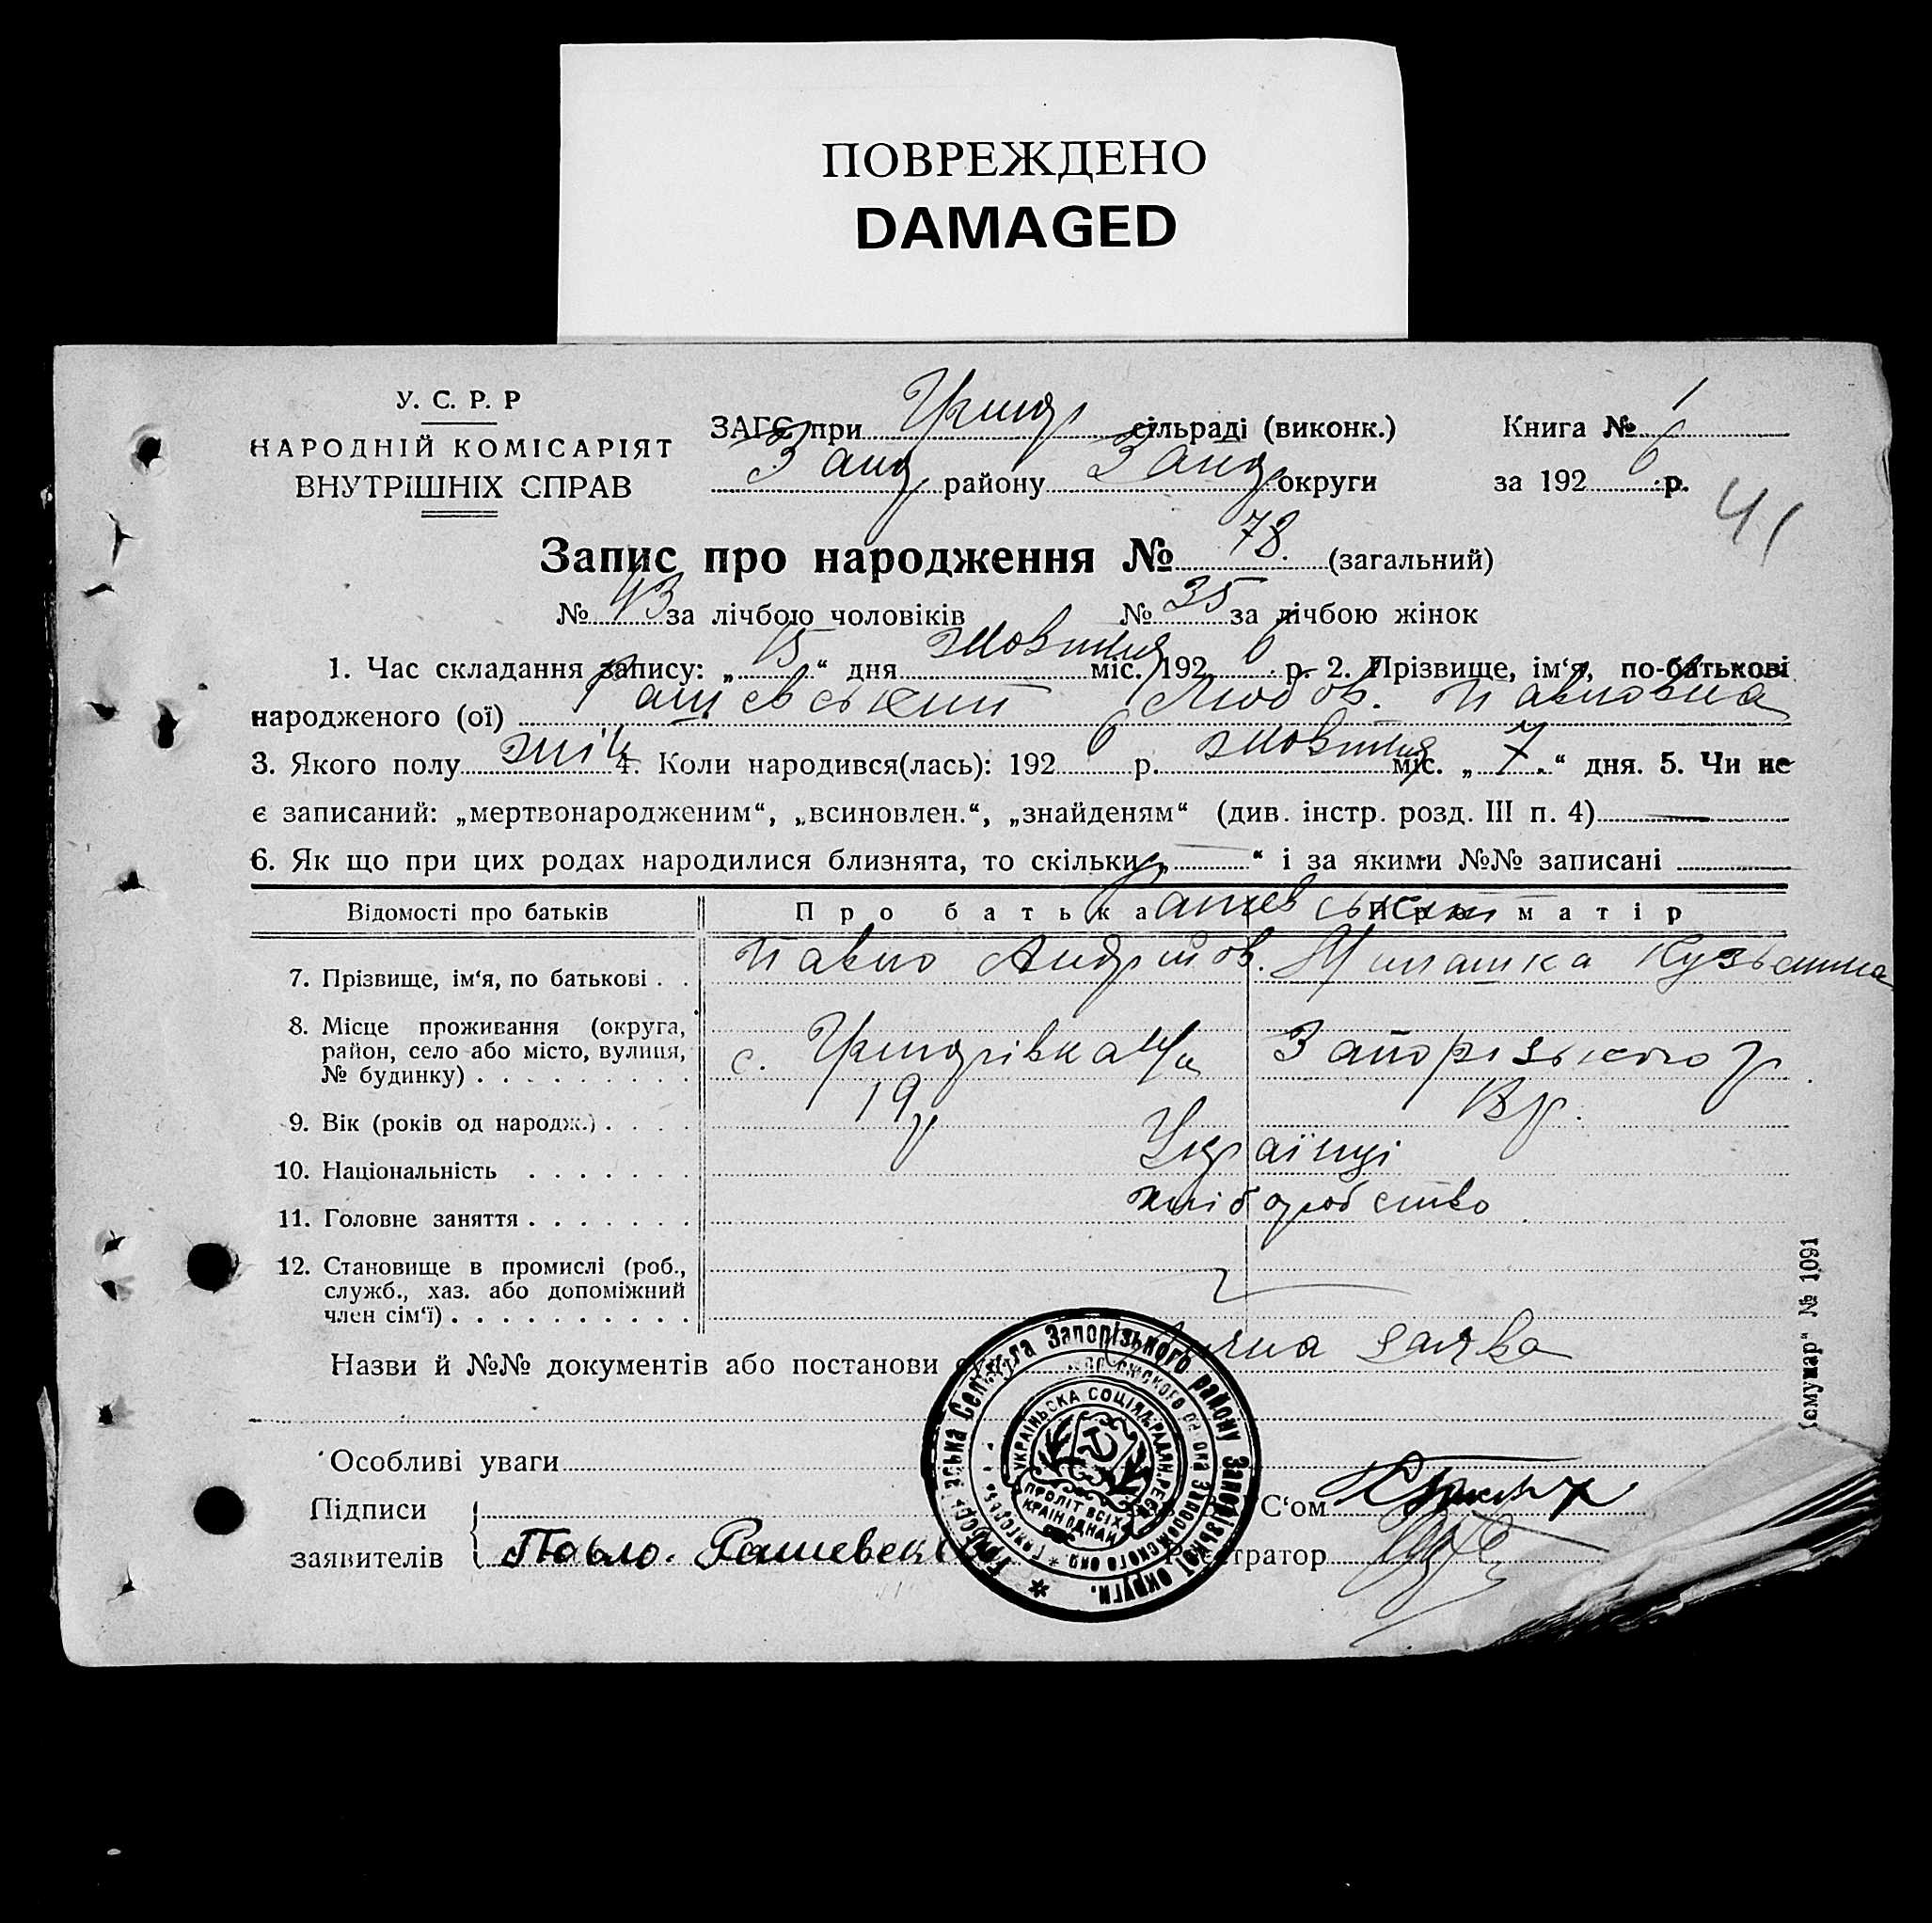 ПОВРЕЖДЕНО
DAMAGED
У. С. Р. Р
НАРОДНІЙ КОМІСАРІЯТ
ВНУТРІШНІХ СПРАВ
ЗАГС при сільраді (виконк.)
Зап району Зап округи
Книга № 1
за 192 6 р.
41
Запис про народження № 78. (загальний)
№ 43 за лічбою чоловіків № 35 за лічбою жінок
1. Час складання запису: „ 15 “ дня жовтня міс. 192 6 р. 2. Прізвище, ім‘я, по-батькові
народженого (ої) Рашевський Любов. Павловна
3. Якого полу жін 4. Коли народився(лась): 192 6 р. жовтня міс. „ 7 “ дня. 5. Чи не
є записаний: „мертвонародженим“, „всиновлен.“, „знайденям“ (див. інстр. розд. III п. 4)
6. Як що при цих родах народилися близнята, то скільки „ “ і за якими №№ записані
Відомості про батьків Про батька Про матір
Рашевський
7. Прізвище, ім‘я, по батькові . . Павло Андрійов. Кузьмина
8. Місце проживання (округа,
район, село або місто, вулиця,
№ будинку) . . . . . . . . . с. Запорізького р
9. Вік (років од народж.) . . . . 19 р 18 р.
10. Національність . . . . . . . Українці
11. Головне заняття . . . . . . . хліборобство
12. Становище в промислі (роб.,
служб., хаз. або допоміжний
член сім‘ї) . . . . . . . . . .
Назви й №№ документів або постанови заява
Особливі уваги
Підписи
заявителів Павло. Рашевський
С‘ом
Реєстратор
Сельрада Запорізького району Запорізької округи.
УКРАЇНСЬКА СОЦІЯЛ. РАДЯН. РЕСП
ПРОЛІТ ВСІХ
КРАЇН ЄДНАЙ
№ 1091